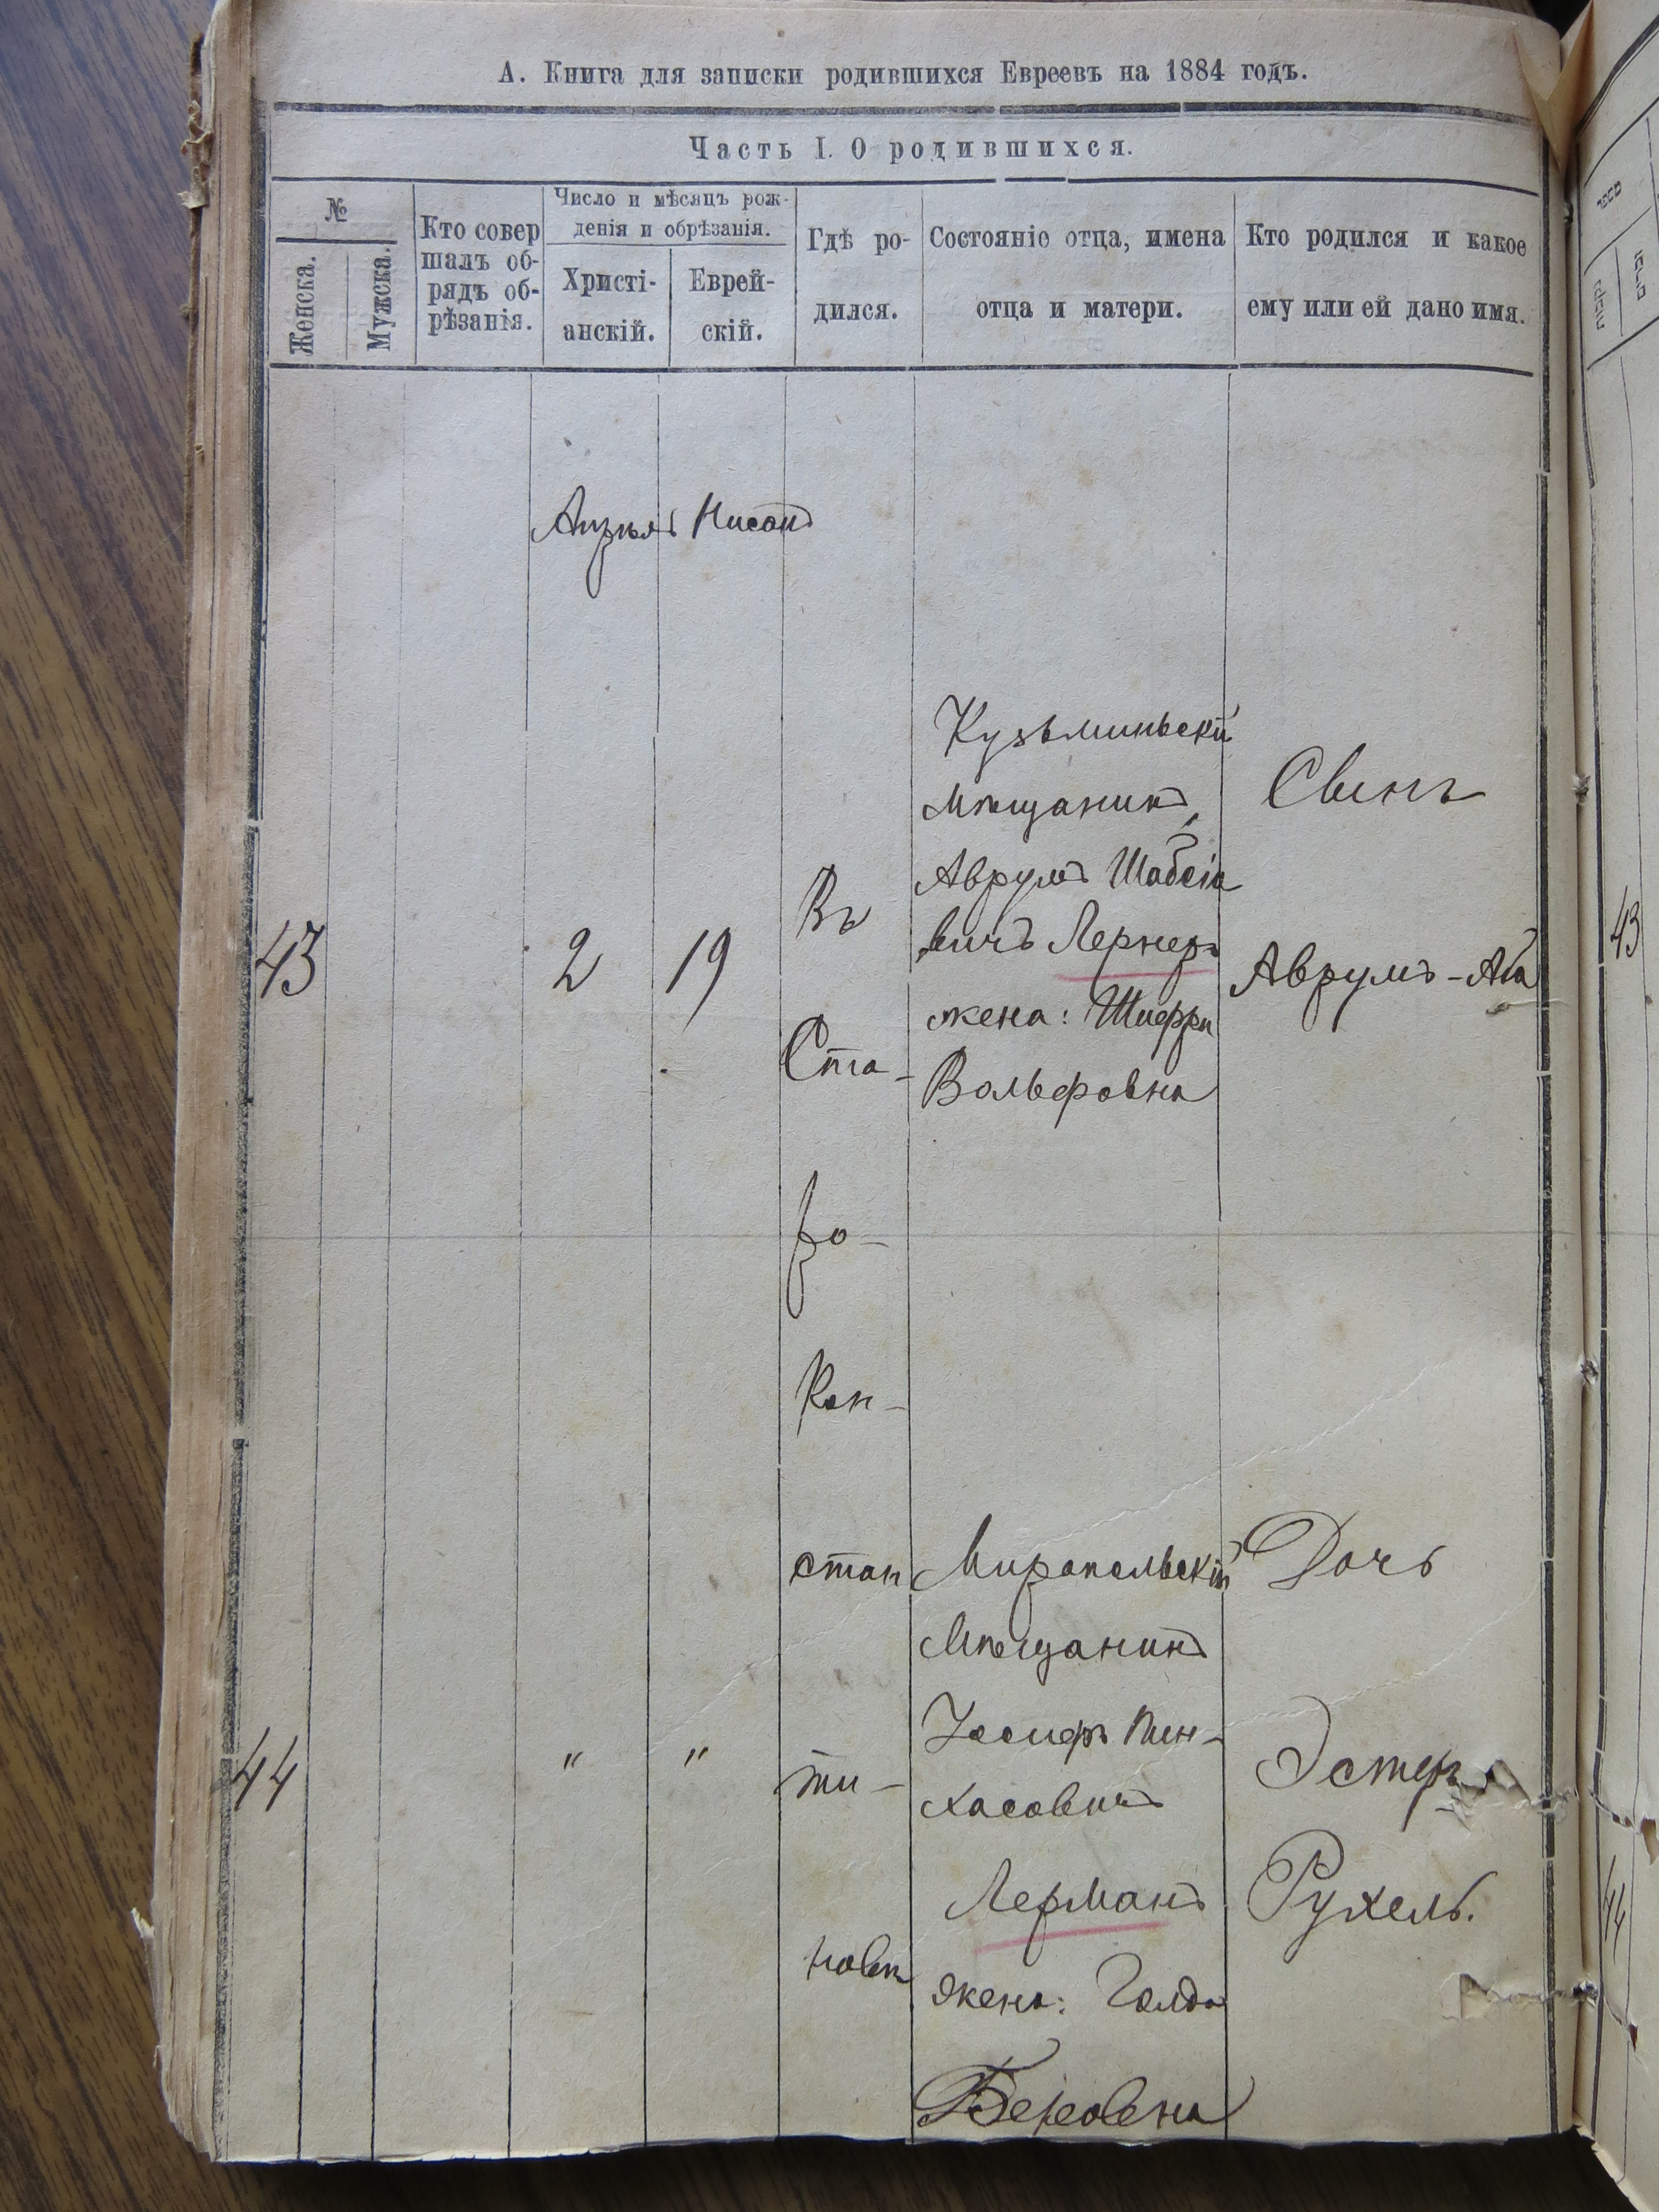 А. Книга для записки родившихся Евреевъ на 1884 годъ.
Часть I. О родившихся.
№
Женска.
Мужска.
Кто совер
шалъ об-
рядъ об-
рѣзанія.
Число и мѣсяцъ рож-
денія и обрѣзанія.
Христі-
анскій.
Еврей-
скій.
Гдѣ ро-
дился.
Состояніе отца, имена
отца и матери.
Кто родился и какое
ему или ей дано имя.
Нисанъ
43
2
19
Въ
Ста-
ро-
Кон-
стан
ти-
новѣ
Кузьминьскій
Мѣщанинъ
Аврумъ Шабсіо
вичъ Лернеръ
жена: Шифра
Вольфовна
Сынъ
Аврумъ-Аба
44
"
"
Миропольскій
Мѣщанинъ
Іосифъ Пин-
хасовичъ
Лерманъ
жена: Голда
Беровна
Дочь
Эстеръ
Рухель.
43
44